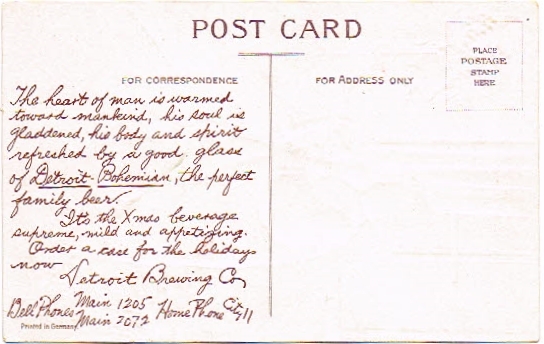 POST CARD
PLACE
POSTAGE
STAMP
HERE
FOR CORRESPONDENCE
FOR ADDRESS ONLY
The heart of man is warmed
toward mankind, his soul is
gladdened, his body and spirit
refreshed by a good glass
of Detroit Bohemian, the perfect
family beer.
It's the Xmas beverage
supreme, mild and appetizing.
Order a case for the holidays
now
Detroit Brewing Co
Bell Phones Main 1205 Home Phone City 11
Main 2072
Printed in Germany